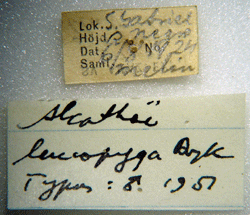 Lok. S. Gabriel
Höjd
Dat. No
Saml. Melin
Alcathoë
leucopyga Bryk
Typus : ♂ 1951